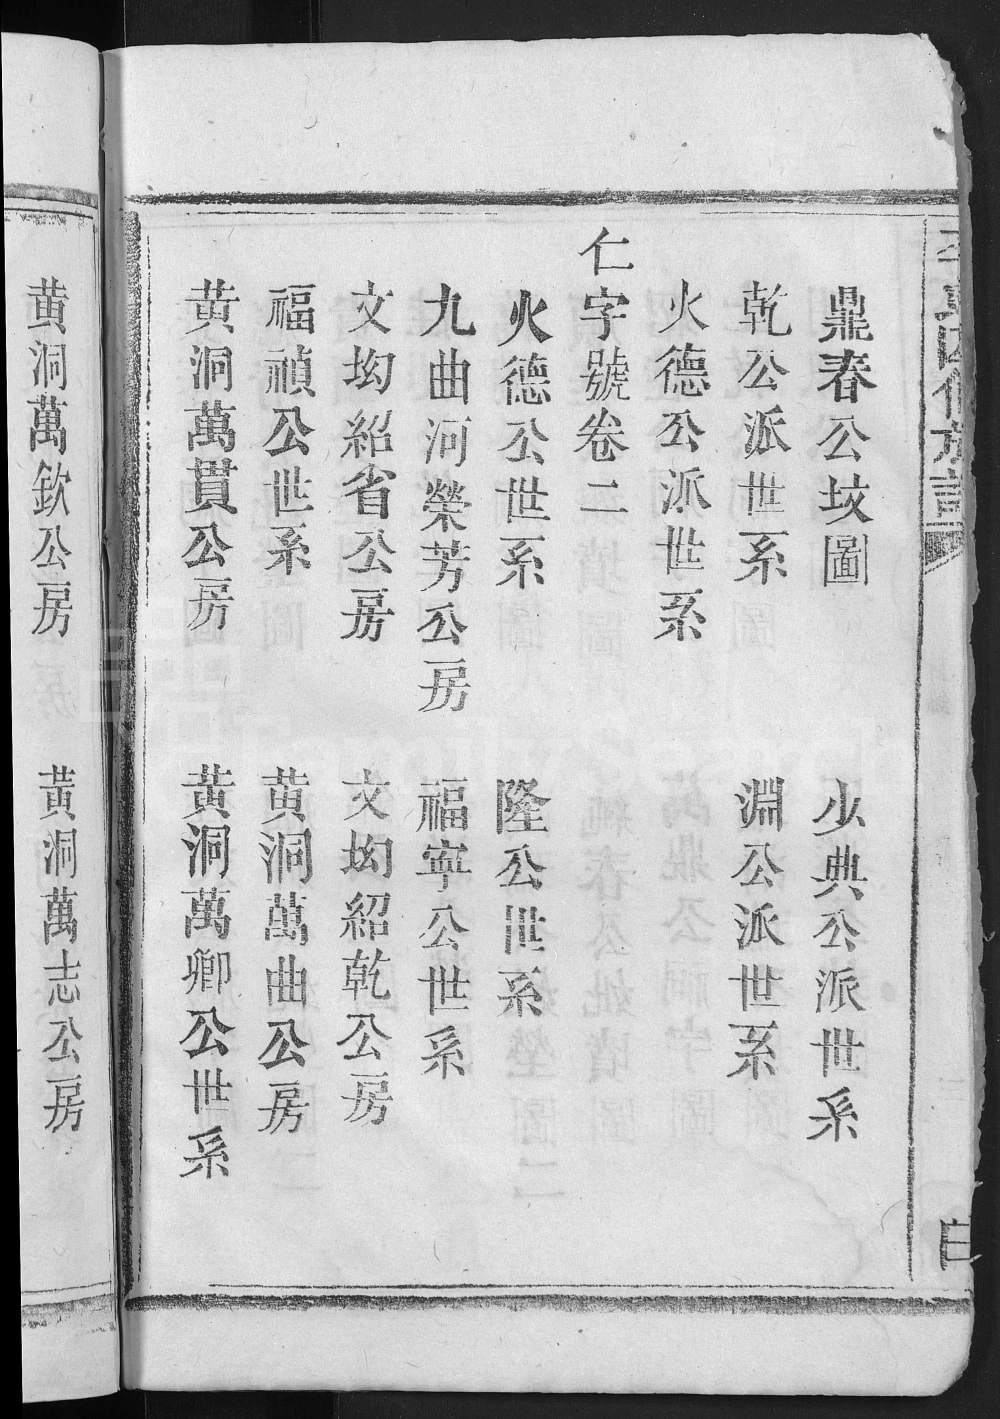 四修族譜
鼎春公坟圖　少典公派世系
乾公派世系　淵公派世系
火德公派世系
仁字號卷二
火德公世系　隆公世系
九曲河榮芳公房　福寧公世系
文坳紹省公房　文坳紹乾公房
福禎公世系　黄洞萬曲公房
黄洞萬貫公房　黄洞萬卿公世系
黄洞萬欽公房　黄洞萬志公房